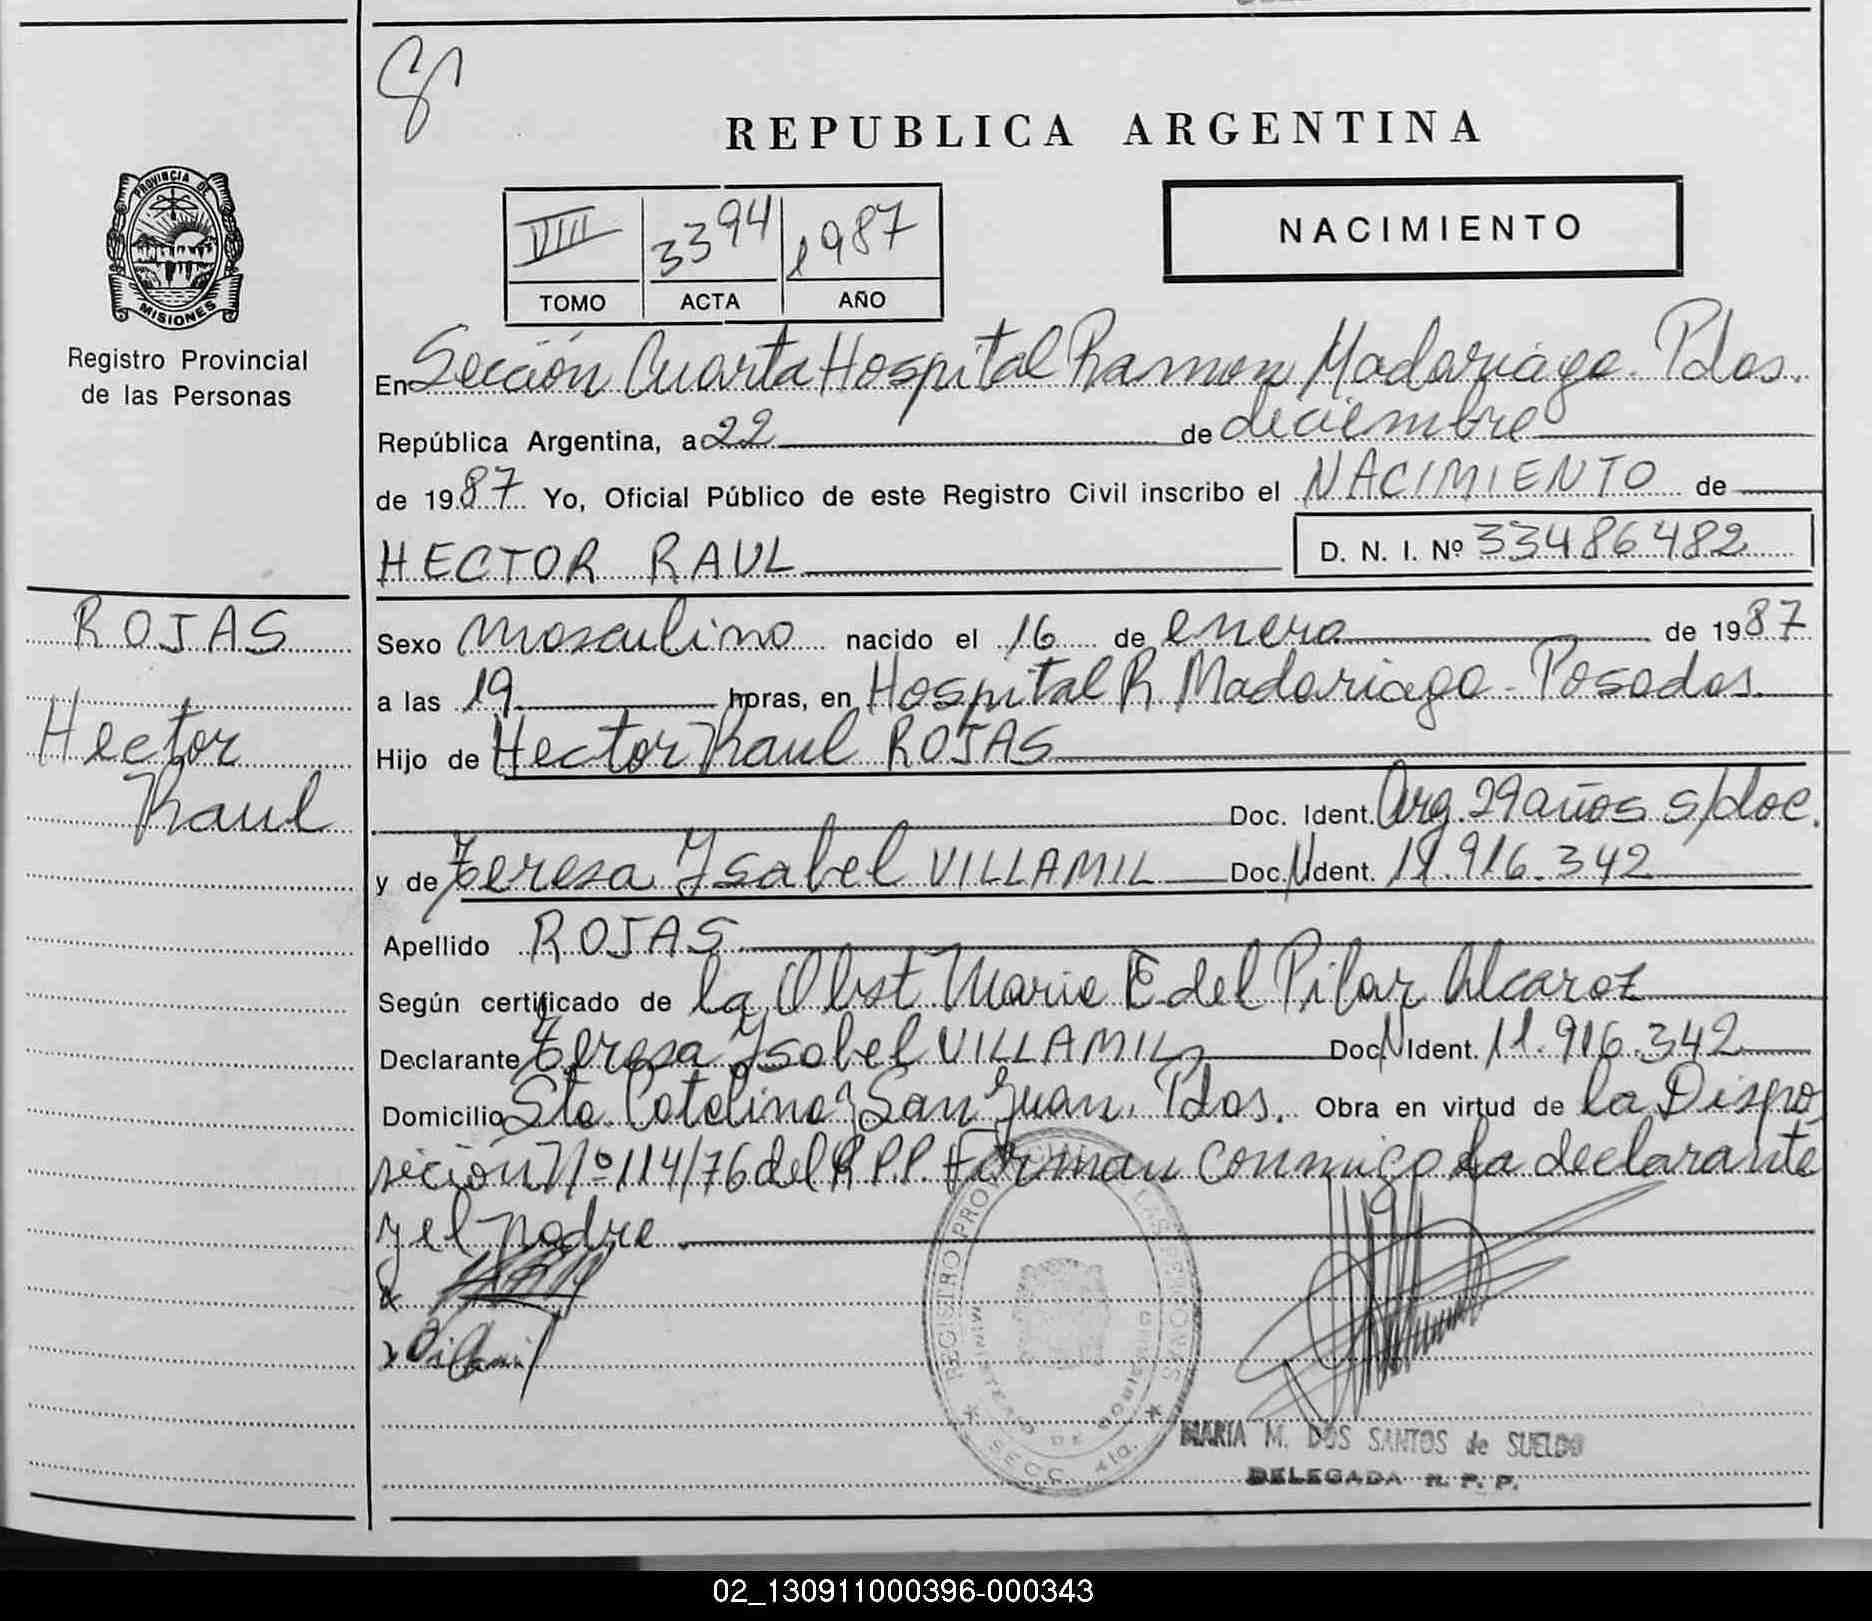 REPUBLICA ARGENTINA
PROVINCIA DE
MISIONES
Registro Provincial
de las Personas
VIII 3394 1987
TOMO ACTA AÑO
NACIMIENTO
En Sección Cuarta Hospital Ramon Madariaga. Pdas.
República Argentina, a 22 de diciembre
de 1987 Yo, Oficial Público de este Registro Civil inscribo el NACIMIENTO de
HECTOR RAUL D. N. I. Nº 33486482
ROJAS
Hector
Raul
Sexo masculino nacido el 16 de enero de 1987
a las 19 horas, en Hospital R. Madariaga - Posadas.
Hijo de Hector Raul ROJAS
Doc. Ident. Arg. 29 años s/doc.
y de Teresa Ysabel VILLAMIL Doc. N Ident. 11.916.342
Apellido ROJAS
Según certificado de la Obst Maria E del Pilar Alcaraz
Declarante Teresa Ysabel VILLAMIL Doc. N Ident. 11.916.342
Domicilio Sta. Catalina y San Juan. Pdas. Obra en virtud de la Dispo
sición Nº 114/76 del R.P.P. Firman conmigo la declarante
y el padre
x
x Villamil
REGISTRO PROV LAS PERSONAS
MINISTERIO DE GOBIERNO
SECC. 4ta.
MARIA M. DOS SANTOS de SUELDO
DELEGADA R. P. P.
02_130911000396-000343